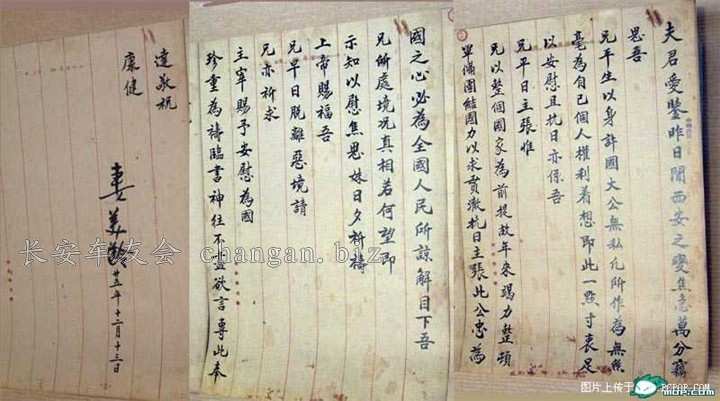 夫君愛鑒昨日聞西安之變焦急萬分竊
思吾
兄平生以身許國大公無私凡所作為無絲
毫為自己個人權利着想即此一點寸衷足
以安慰且抗日亦係吾
兄平日主張惟
兄以整個國家為前提故年來竭力整頓
軍備團結國力以求貫澈抗日主張此公忠為
國之心必為全國人民所諒解目下吾
兄所處境況真相若何望即
示知以慰焦思妹日夕祈禱
上帝賜福吾
兄早日脫離惡境請
兄亦祈求
主宰賜予安慰為國
珍重為禱臨書神往不盡欲言專此奉
達敬祝
康健
妻美齡
廿五年十二月十三日
长安车友会 changan.biz
图片上传于
PCPOP.COM